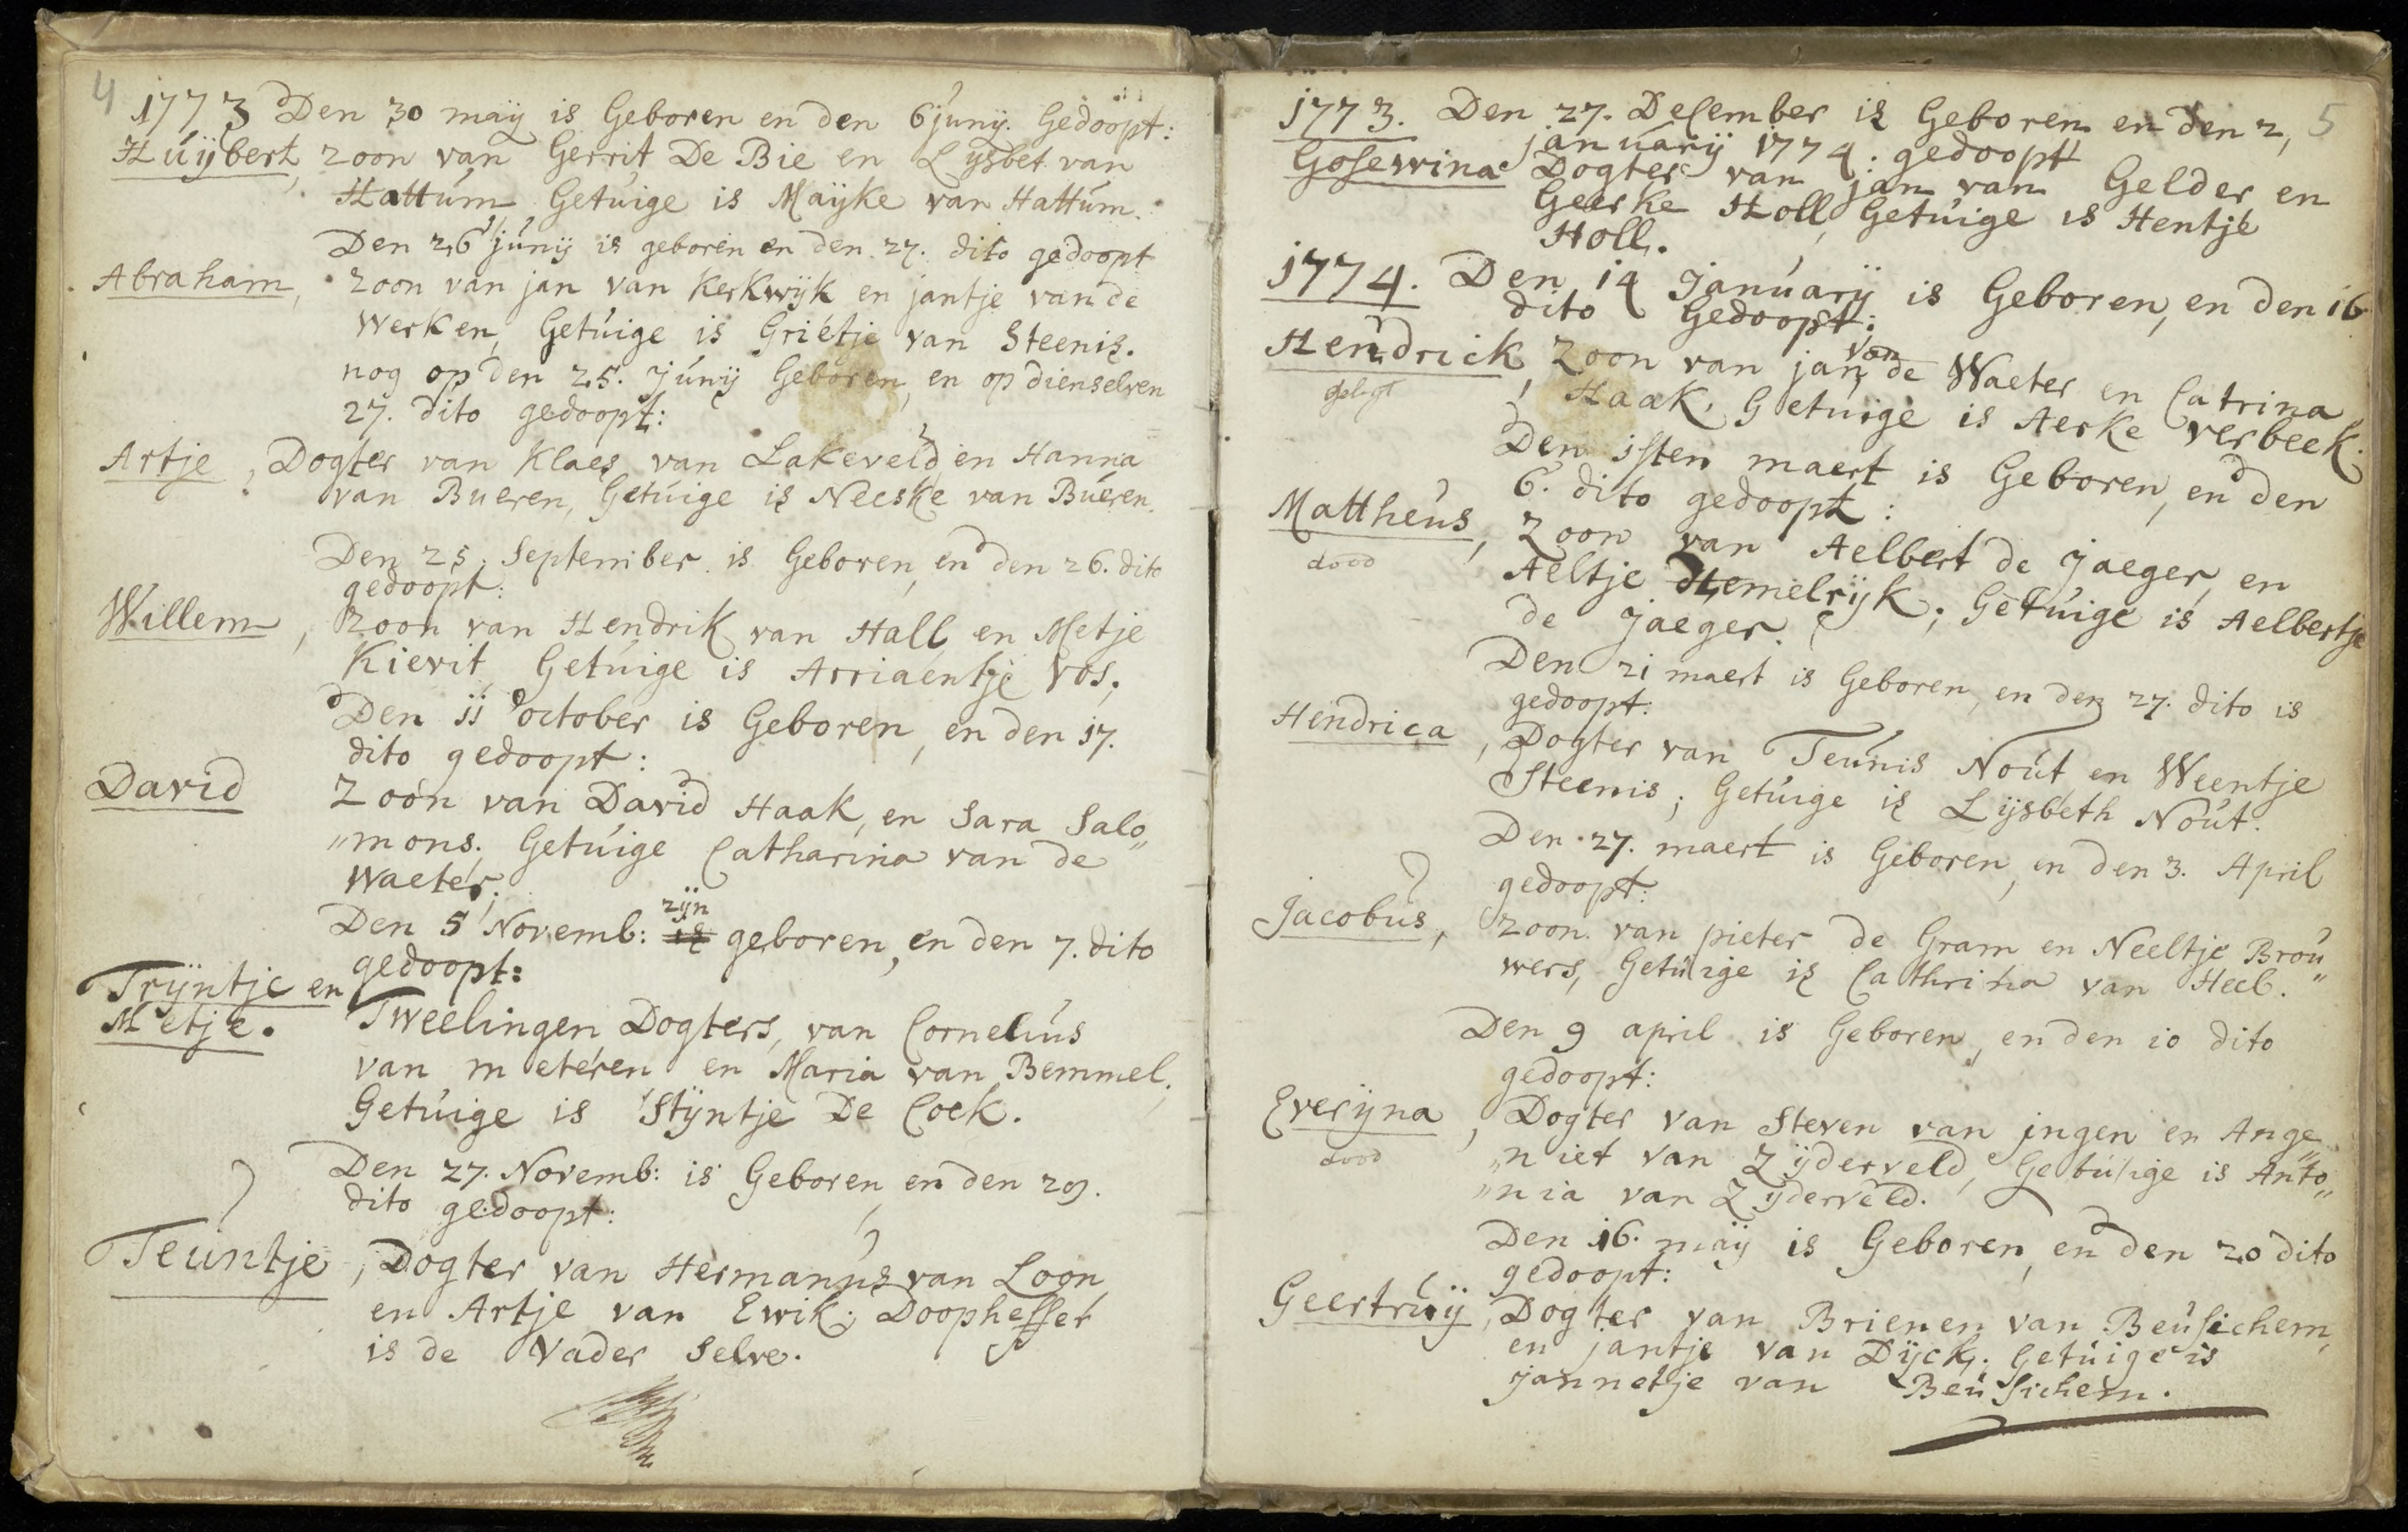 4
1773 Den 30 maÿ is Geboren en den 6 junÿ. Gedoopt:
Huÿbert, zoon van Gerrit De Bie en Lÿsbet van
Hattum Getuige is Maÿke van Hattum.
Den 26 junÿ is geboren en den 27. dito gedoopt
Abraham, zoon van jan van Kerkwÿk en jantje van de
Werken, Getuige is Grietje van Steenis.
nog op den 25. Junÿ Geboren, en op dienselven
27. dito gedoopt:
Artje, Dogter van Klaes van Lakeveld en Hanna
van Bueren, Getuige is Neeske van Bueren.
Den 25. September is Geboren, en den 26. dito
gedoopt:
Willem, Zoon van Hendrik van Hall en Metje
Kievit, Getuige is Arriaentje Vos.
Den 11 october is Geboren, en den 17.
dito gedoopt:
David Zoon van David Haak, en Sara Salo„
„mons. Getuige Catharina van de
Waeter.
Den 5 Novemb: is zÿn geboren, en den 7. dito
gedoopt:
Trÿntje en
Metje. Tweelingen Dogters, van Cornelius
van meteren en Maria van Bemmel,
Getuige is Stÿntje De Cock.
Den 27. Novemb: is Geboren, en den 29.
dito gedoopt:
Teuntje, Dogter van Hermanus van Loon,
en Artje van Ewik; Doopheffer
is de Vader Selve.
5
1773. Den 27. December is Geboren en den 2,
januarÿ 1774. gedoopt
Gosewina Dogter van jan van Gelder en
Geerke Holl, Getuige is Hentje
Holl.
1774. Den 14 Januarÿ is Geboren, en den 16
dito Gedoopt:
Hendrick, Zoon van jan van de Waeter en Catrina
Haak, Getuige is Aerke verbeek.
Den 1sten maert is Geboren, en den
6. dito gedoopt:
Mattheus, Zoon van Aelbert de Jaeger, en
dood
Aeltje Hemelrÿk; Getuige is Aelbertje
de Jaeger.
Den 21 maert is Geboren, en den 27. dito is
gedoopt:
Hendrica, Dogter van Teunis Nout, en Weentje
Steenis; Getuige is Lÿsbeth Nout.
Den 27. maert is Geboren, en den 3. April
gedoopt:
Jacobus, zoon van pieter de Gram en Neeltje Brou„
wers, Getuige is Cathrina van Heel.
Den 9 april is Geboren, en den 10 dito
gedoopt:
Everÿna, Dogter van Steven van jngen en Ange„
dood
„niet van Zÿderveld, Getuige is Anto„
„nia van Zÿderveld.
Den 16. maÿ is Geboren, en den 20 dito
gedoopt:
Geertruÿ, Dogter van Brienen van Beusichem,
en jantje van Dÿck; Getuige is
Jannetje van Beusichem.